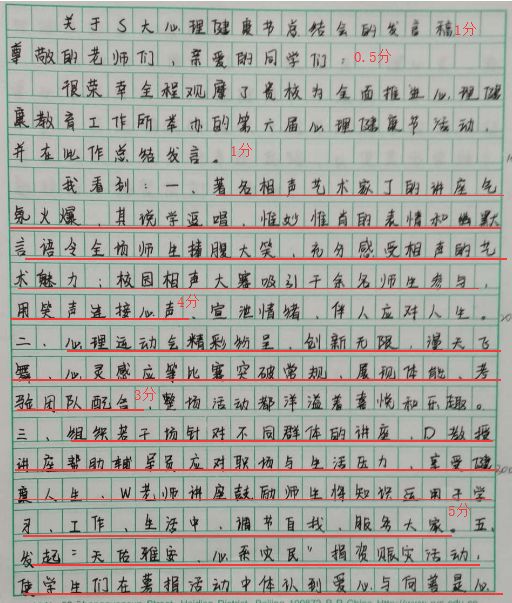 关于S大心理健康节总结会的发言稿 1分
尊敬的老师们，亲爱的同学们： 0.5分
很荣幸全程观摩了贵校为全面推进心理健
康教育工作所举办的第六届心理健康节活动，
并在此作总结发言。 1分
我看到：一、著名相声艺术家丁的讲座气
氛火爆，其说学逗唱，惟妙惟肖的表情和幽默
言语令全场师生捧腹大笑，充分感受相声的艺
术魅力；校园相声大赛吸引千余名师生参与，
用笑声连接心声 4分 、宣泄情绪，伴人应对人生。
二、心理运动会精彩纷呈，创新无限，漫天飞
舞、心灵感应等比赛突破常规，展现体能、考
验团队配合 3分 ，整场活动都洋溢着喜悦和乐趣。
三、组织若干场针对不同群体的讲座，D教授
讲座帮助辅导员应对职场与生活压力，享受健
康人生，W老师讲座鼓励师生将知识运用于学
习、工作、生活中，调节自我、服务大家。 5分 五、
发起“天佑雅安，心系灾民”捐资赈灾活动，
使学生们在募捐活动中体认到爱心与向善是心